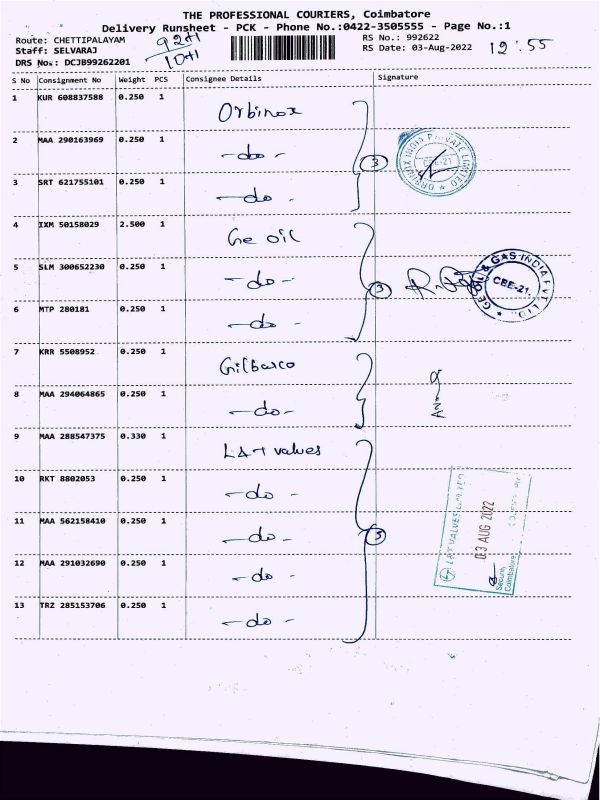 THE PROFESSIONAL COURIERS, Coimbatore
Delivery Runsheet - PCK - Phone No.:0422-3505555 - Page No.:1
Route: CHETTIPALAYAM
RS No.: 992622
Staff: SELVARAJ
RS Date: 03-Aug-2022 12:55
DRS No.: DCJB99262201
S No Consignment No Weight PCS Consignee Details Signature
1 KUR 608837588 0.250 1 Orbinox
2 MAA 290163969 0.250 1 -do-
3
3 SRT 621755101 0.250 1 -do-
4 IXM 50158029 2.500 1 Ge oil
5 SLM 300652230 0.250 1 -do-
3
6 MTP 280181 0.250 1 -do-
7 KRR 5508952 0.250 1 Gilbarco
8 MAA 294064865 0.250 1 -do-
9 MAA 288547375 0.330 1 L&T valves
10 RKT 8802053 0.250 1 -do-
11 MAA 562158410 0.250 1 -do-
5
12 MAA 291032690 0.250 1 -do-
13 TRZ 285153706 0.250 1 -do-
ORBINOX INDIA PRIVATE LIMITED
CBE-21
GE OIL & GAS INDIA PVT. LTD.
CBE-21.
L&T VALVES LIMITED
03 AUG 2022
Security
Coimbatore